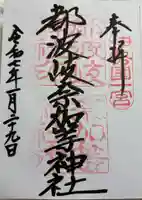 奉拝
都波岐奈加等神社
令和七年一月二十九日